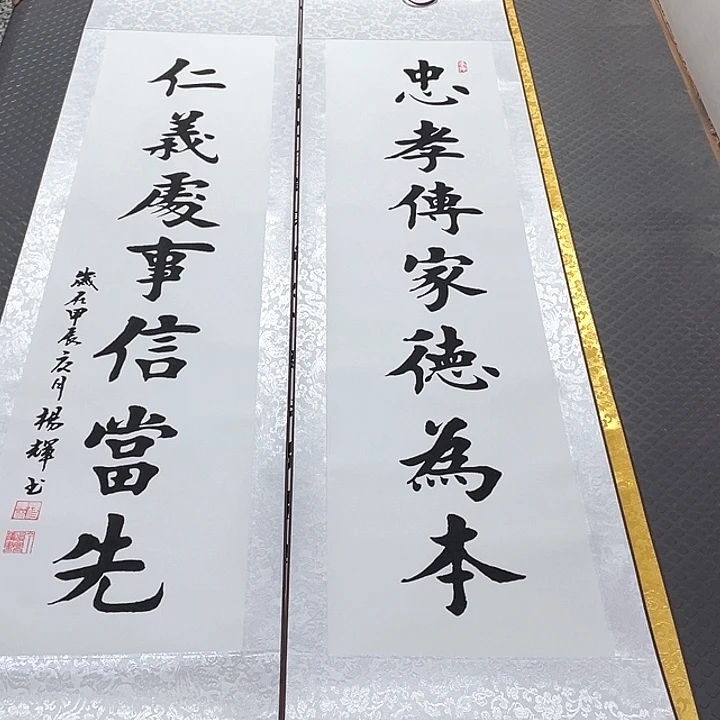 忠孝傳家德為本
仁義處事信當先
歲在甲辰夏月楊輝書